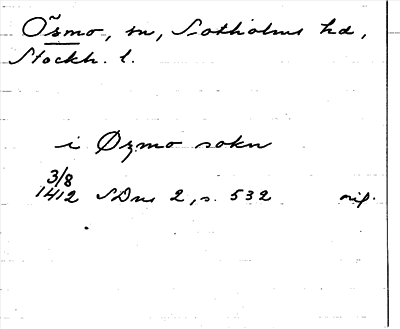 Ösmo, sn, Sotholms hd,
Stockh. l.
i Øzmo sokn
3/8
1412 SDns 2, s. 532 orig.